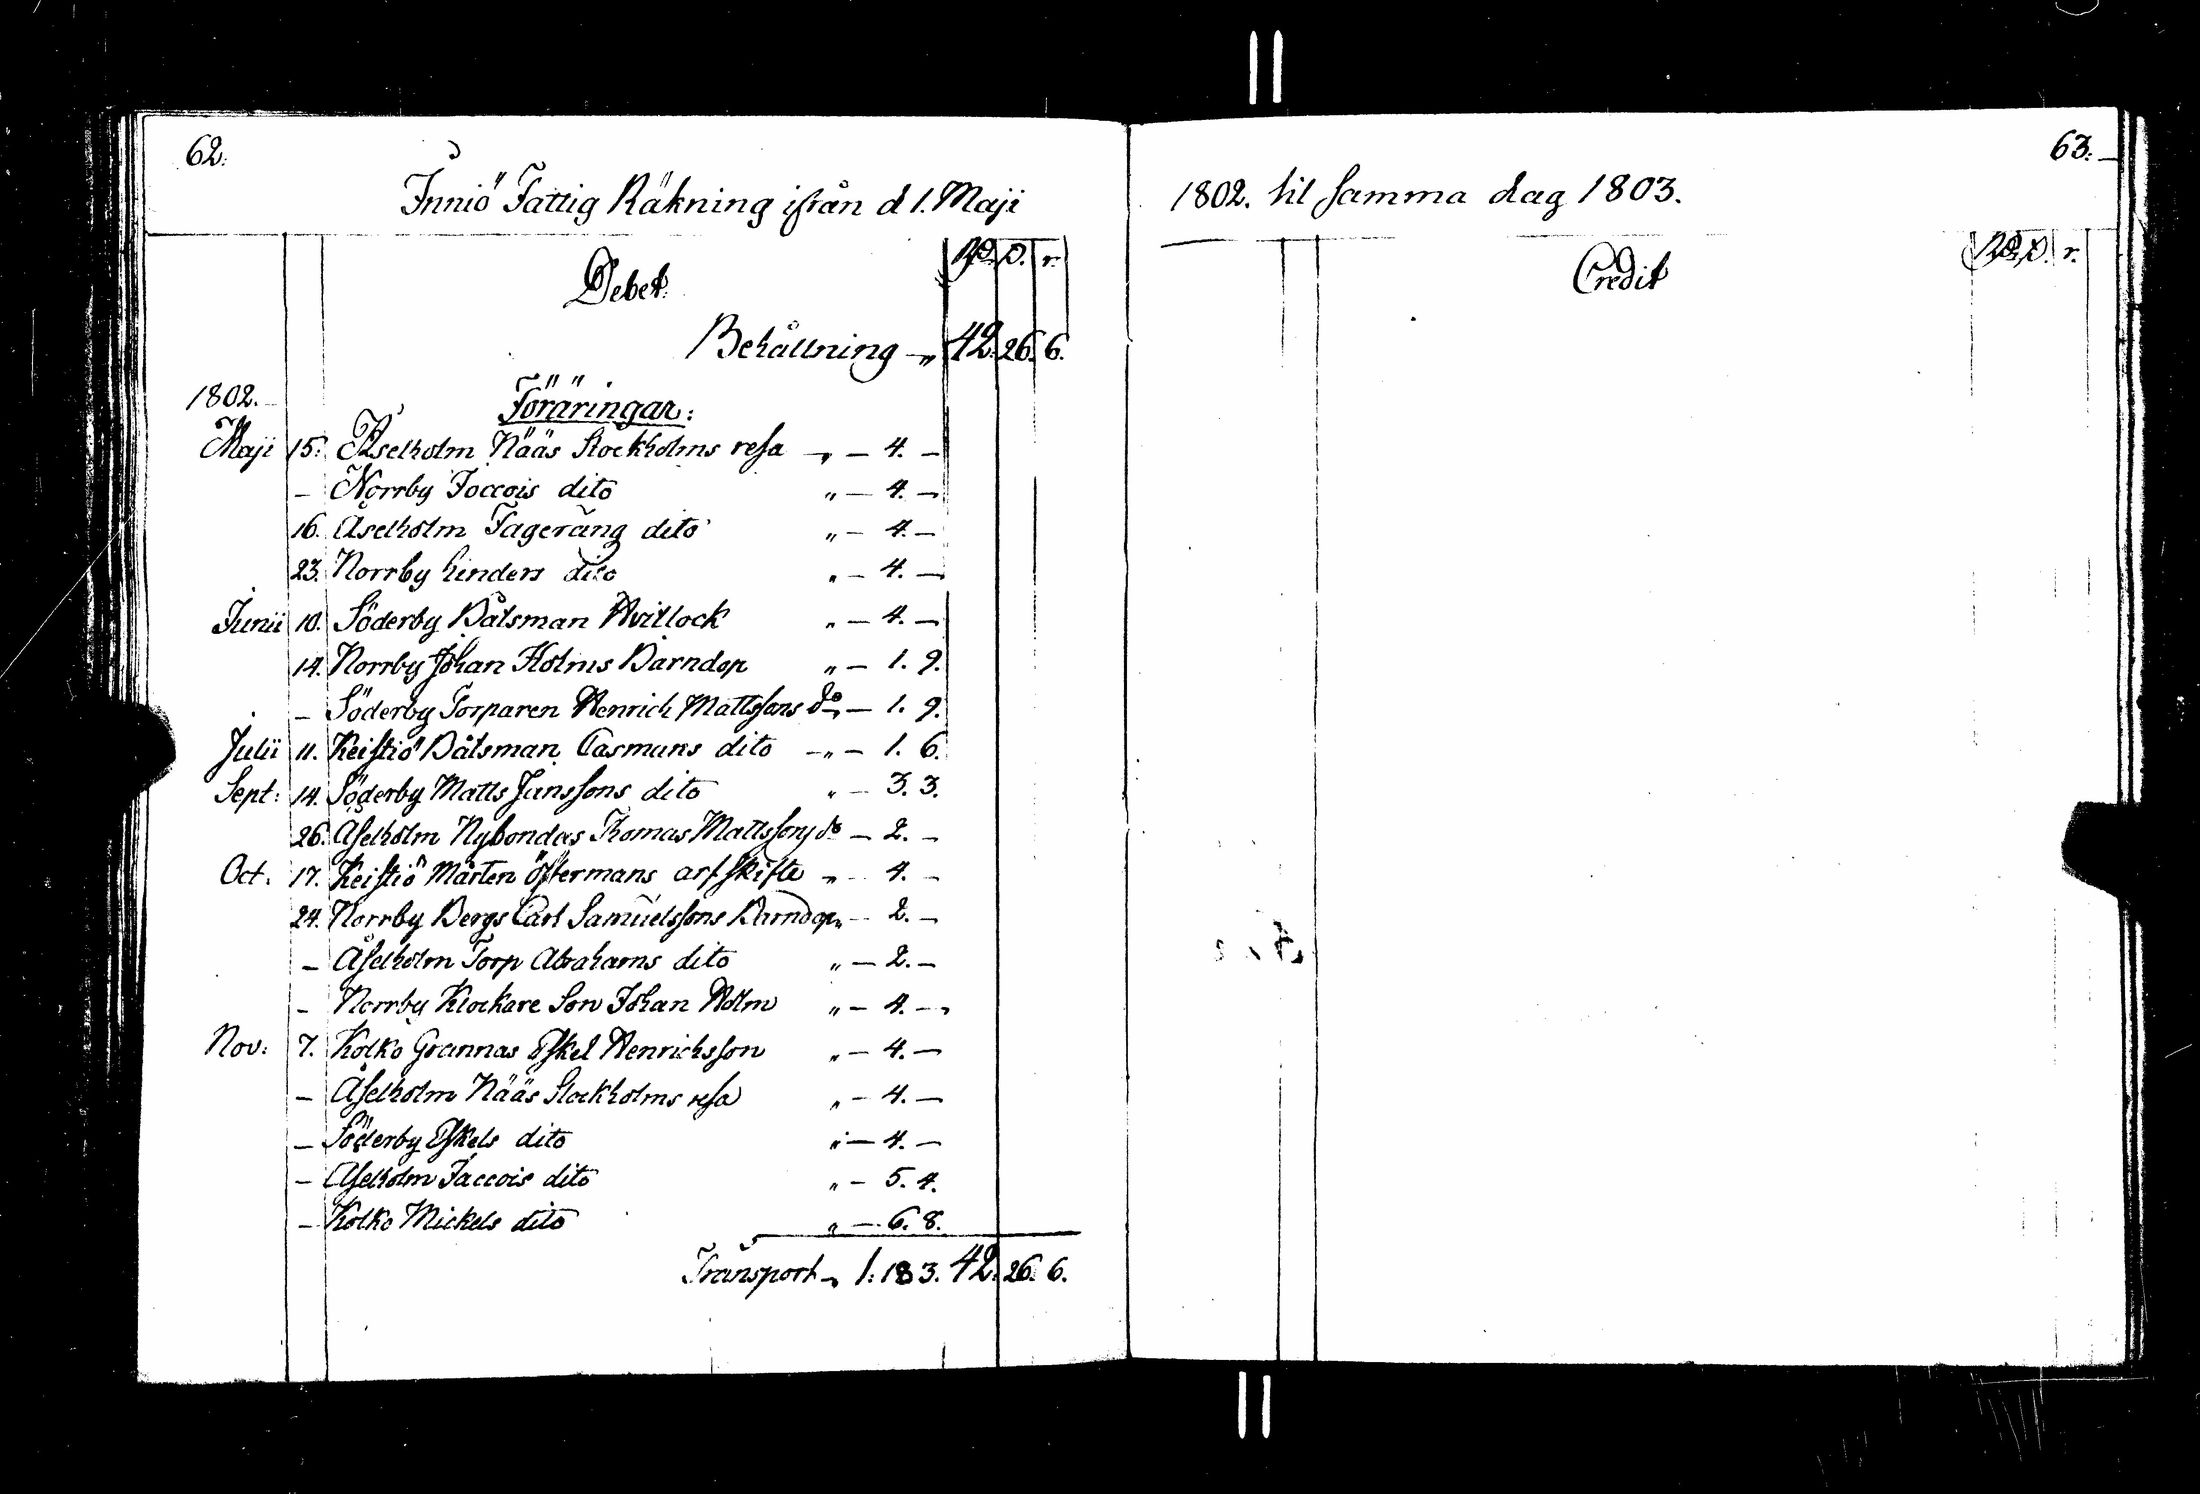 62.
Inniö Fattig Räkning ifrån d 1. Maji
Debet. Rd. s. r.
Behållning — „ 42. 26. 6.
1802.
Föräringar:
Maji 15. Åselholm Nääs Stockholms resa — „ — 4. —
— Norrby Joccois dito „ — 4. —
16. Åselholm Fageräng dito „ — 4. —
23. Norrby Linders dito „ — 4. —
Junii 10. Söderby Båtsman Hvitlock „ — 4. —
14. Norrby Johan Holms Barndop „ — 1. 9.
— Söderby Torparen Henrich Mattssons do „ — 1. 9.
Julii 11. Keistiö Båtsman Casmans dito — „ — 1. 6.
Sept: 14. Söderby Matts Janssons dito „ — 3. 3.
26. Åselholm Nybondas Thomas Mattssons do — 2. —
Oct. 17. Keistiö Mårten Östermans arfskifte „ — 4. —
24. Norrby Bergs Carl Samuelssons Barndop „ — 2. —
— Åselholm Torp Abrahams dito „ — 2. —
— Norrby Klockare Son Johan Holm „ — 4. —
Nov: 7. Kolko Grannas Eskel Henrichsson „ — 4. —
— Åselholm Nääs Stockholms resa „ — 4. —
— Söderby Eskels dito „ — 4. —
— Åselholm Jaccois dito „ — 5. 4.
— Kolko Mickels dito „ — 6. 8.
Transport — „ 1: 18 3. 42. 26. 6.
63.
1802. til samma dag 1803.
Credit Rd. s. r.